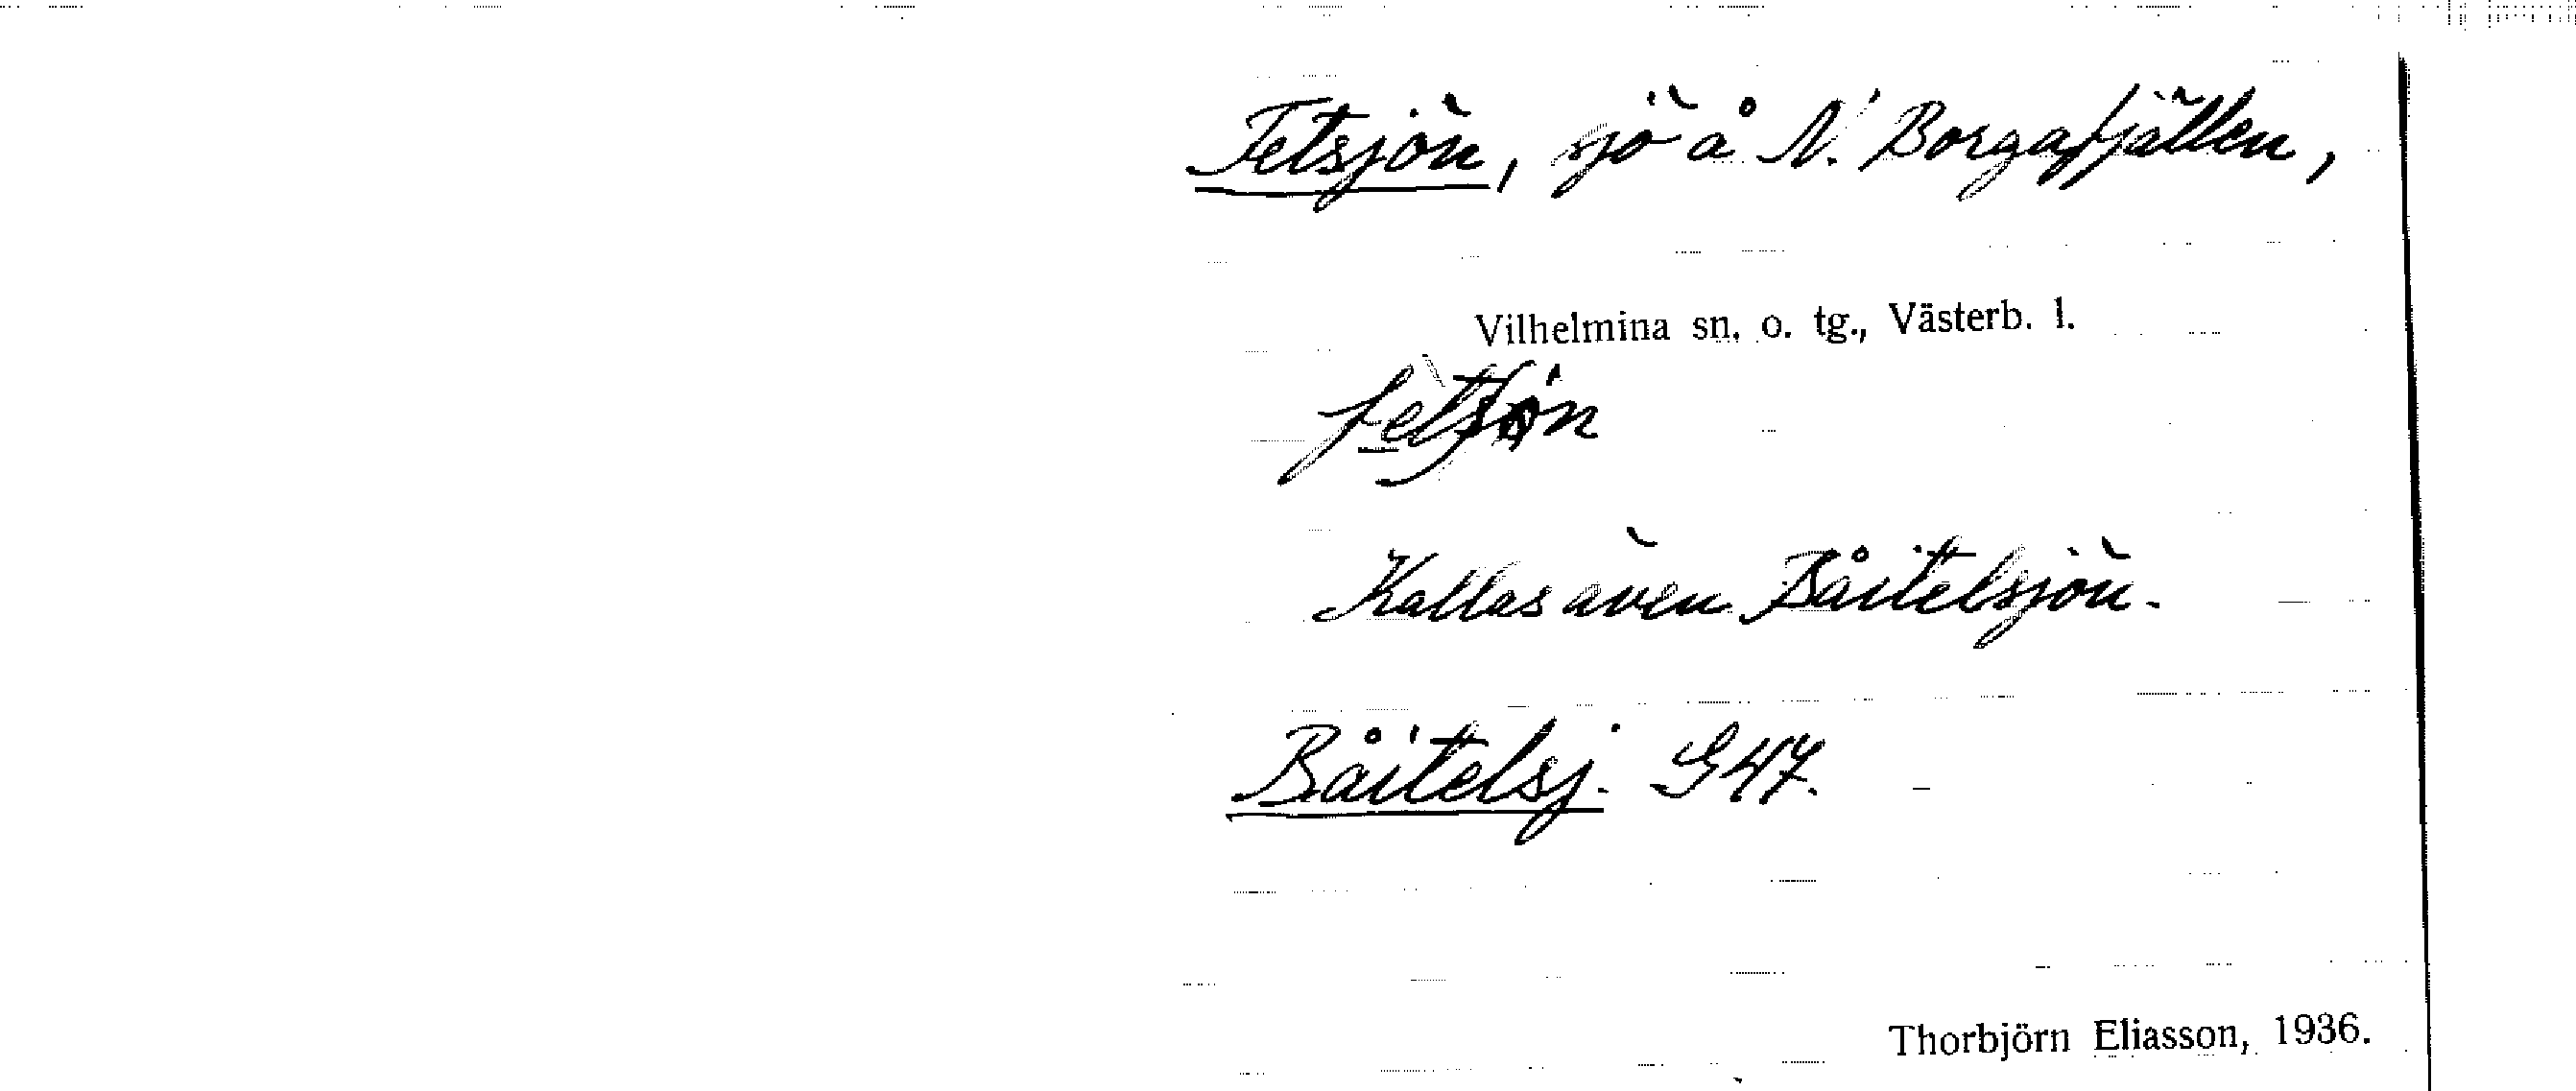 Fetsjön, sjö å N. Borgafjällen,
Vilhelmina sn. o. tg., Västerb. l.
Kallas även Båitelsjön.
Båitelsj. G47.
Thorbjörn Eliasson, 1936.